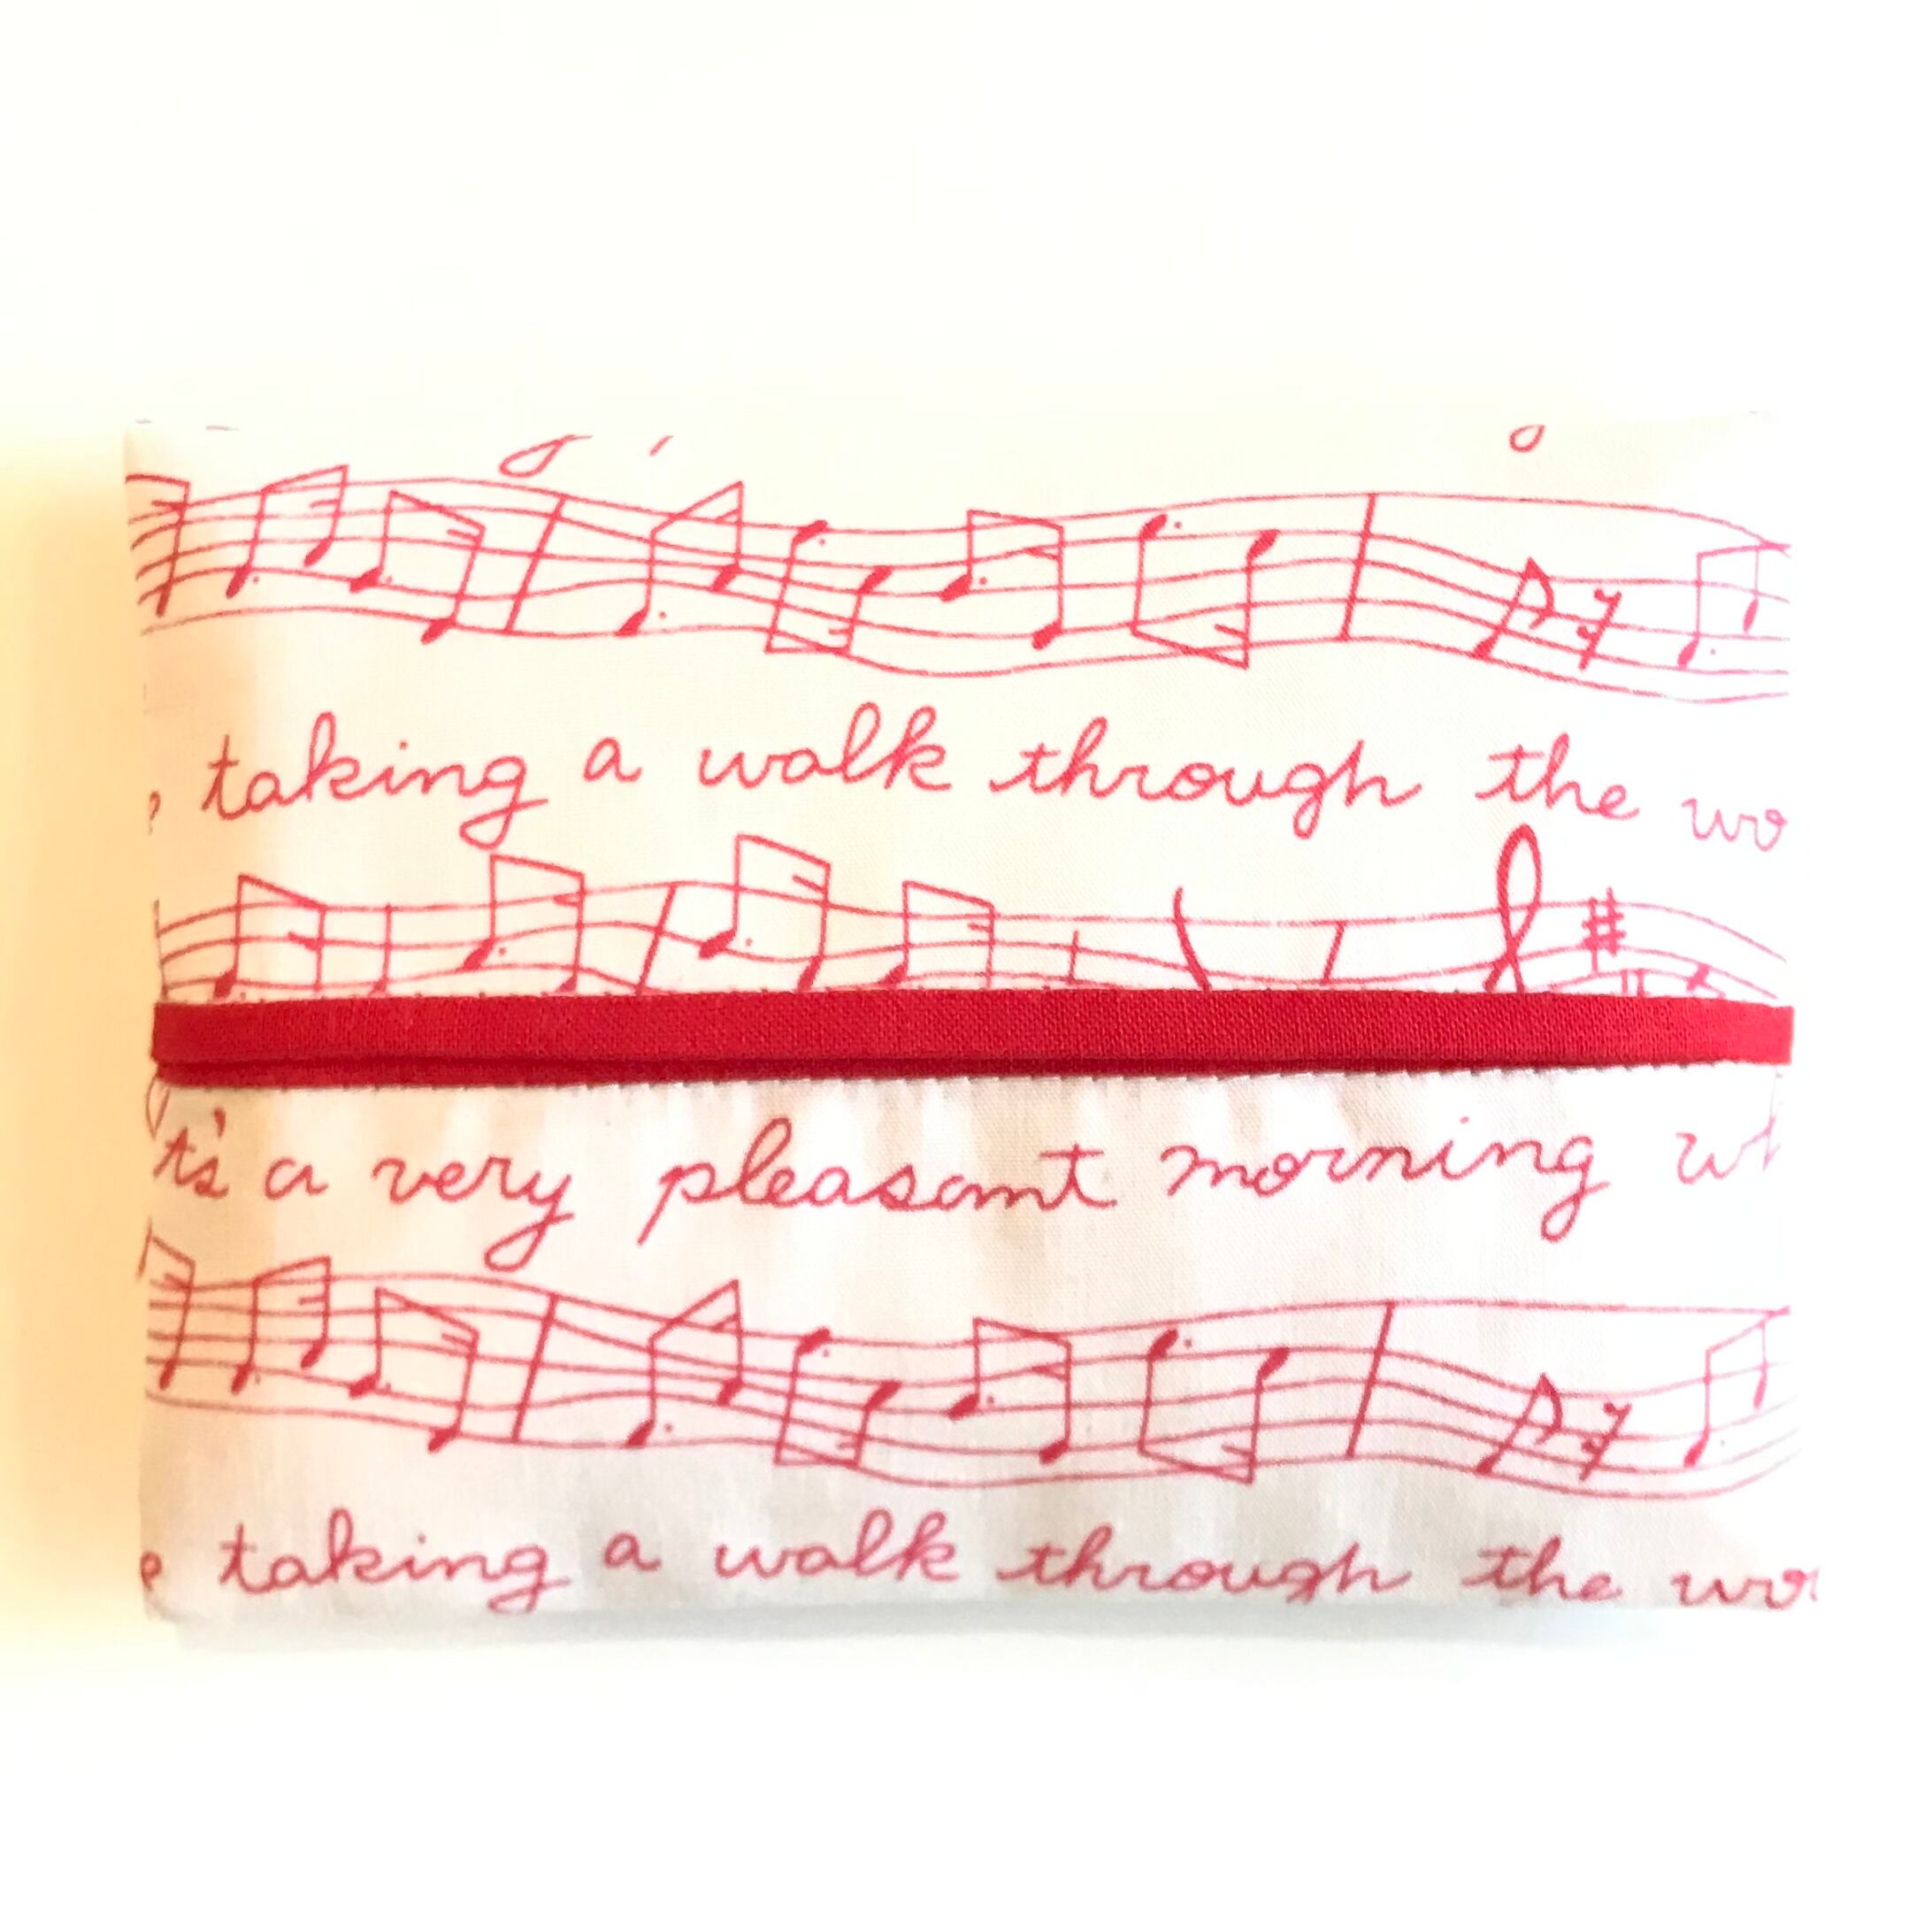 taking a walk through the
t's a very pleasant morning
taking a walk through the